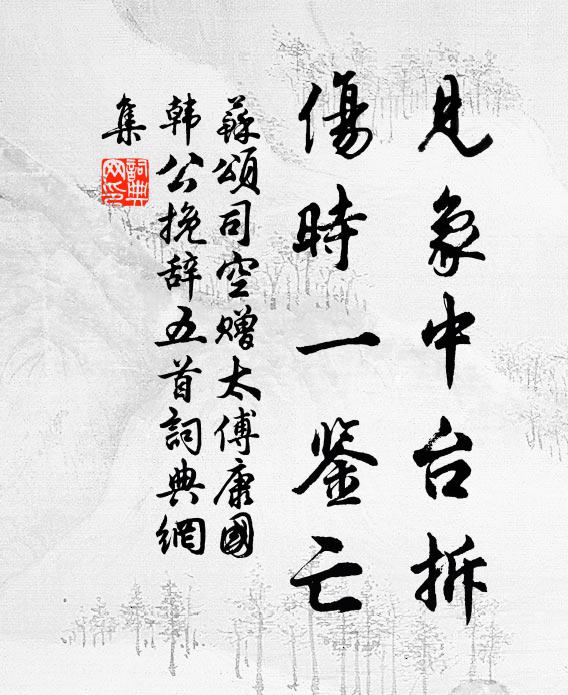 見象中台拆
傷時一鉴亡
蘇頌司空赠太傅康國
韩公挽辞五首詞典網
集
詞典
网印